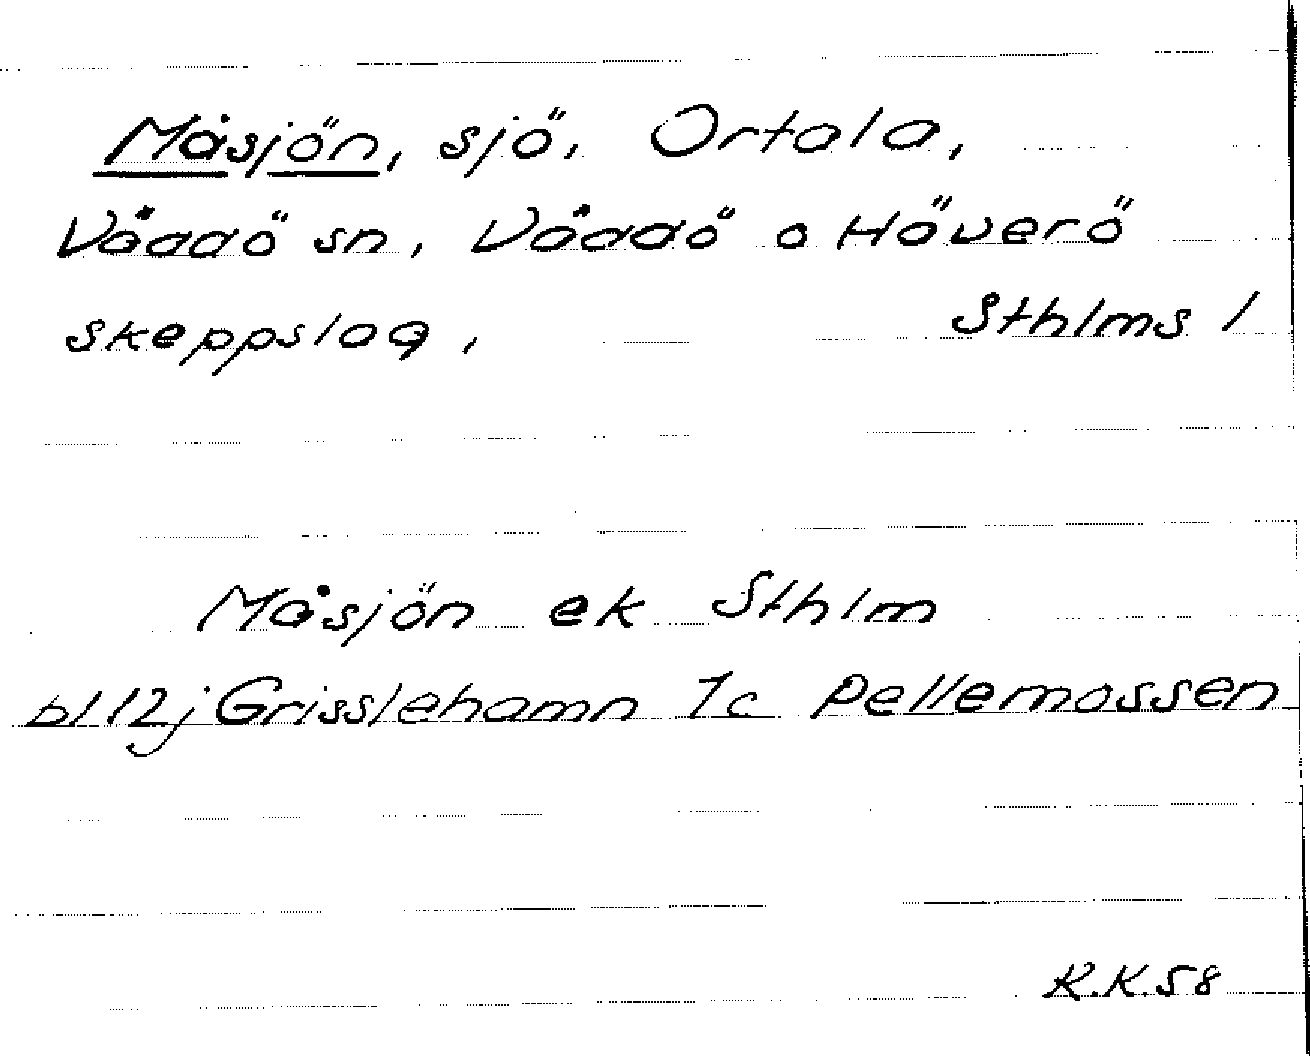 Måsjön, sjö, Ortala,
Väddö sn, Väddö o Häverö
skeppslag, Sthlms l
Måsjön ek Sthlm
bl 12j Grisslehamn 1c Pellemossen
R.K.58